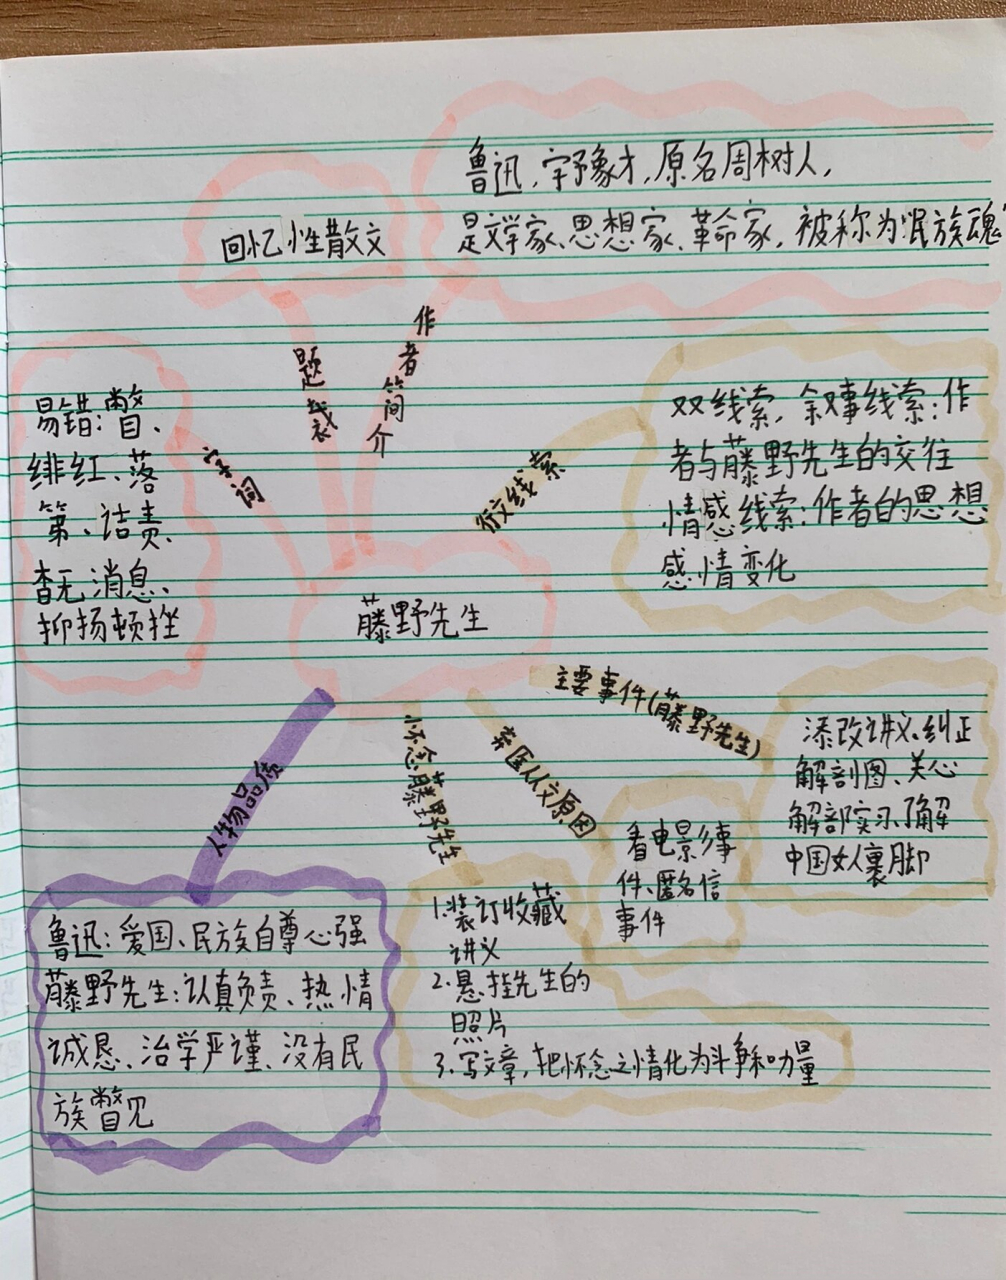 鲁迅,字予象才,原名周树人,
是文学家、思想家、革命家,被称为“民族魂”
回忆性散文
作者简介
题裁
易错:瞥、
绯红、落
第、诘责、
杳无消息、
抑扬顿挫
字词
行文线索
双线索,叙事线索:作
者与藤野先生的交往
情感线索:作者的思想
感情变化
藤野先生
主要事件(藤野先生)
添改讲义、纠正
解剖图、关心
解部实习、了解
中国女人裹脚
弃医从文原因
看电影事
件、匿名信
事件
怀念藤野先生
1.装订收藏
讲义
2.悬挂先生的
照片
3.写文章,把怀念之情化为斗争和力量
人物品质
鲁迅:爱国、民族自尊心强
藤野先生:认真负责、热情
诚恳、治学严谨、没有民
族瞥见